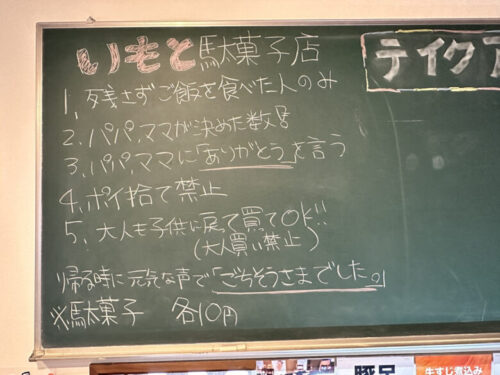 いもと駄菓子店
テイクア
1、残さずご飯を食べた人のみ
2、パパ、ママが決めた数!!
3、パパ、ママに「ありがとう」を言う
4、ポイ捨て禁止
5、大人も子供に戻って買てOK!!
(大人買い禁止)
帰る時に元気な声で「ごちそうさまでした。」
※駄菓子 各10円
牛すじ煮込み